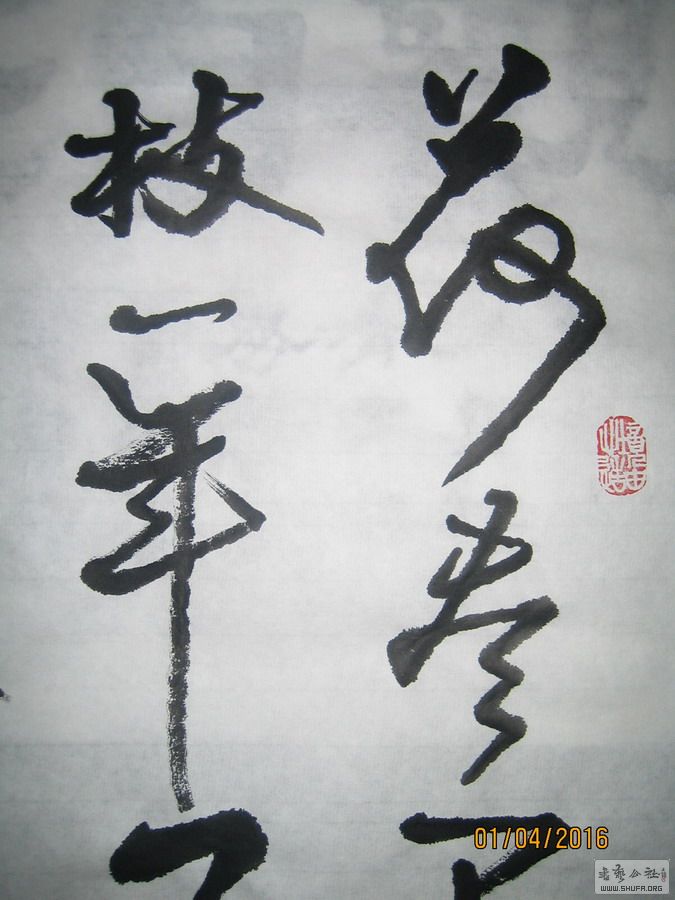 荷盡
枝一年
01/04/2016
書藝公社
WWW.SHUFA.ORG